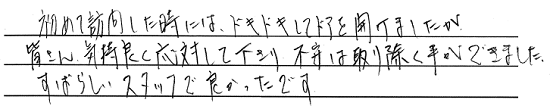 初めて訪問した時には、ドキドキしてドアを開けましたが
皆さん、気持良く応対して下さり 不安は取り除く事ができました。
すばらしいスタッフで良かったです